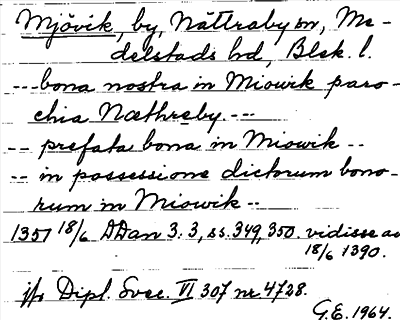 Mjövik, by, Nättraby sn, Me-
delstads hd, Blek. l.
--- bona nostra in Miowik paro-
chia Næthreby. ---
-- prefata bona in Miowik --
-- in possessione dictorum bono-
rum in Miowik --
1357 18/6 DDan 3. 3, ss. 349, 350. vidisse av
18/6 1390.
jfr Dipl. Svec. VI 307 nr. 4728.
G.E. 1964.